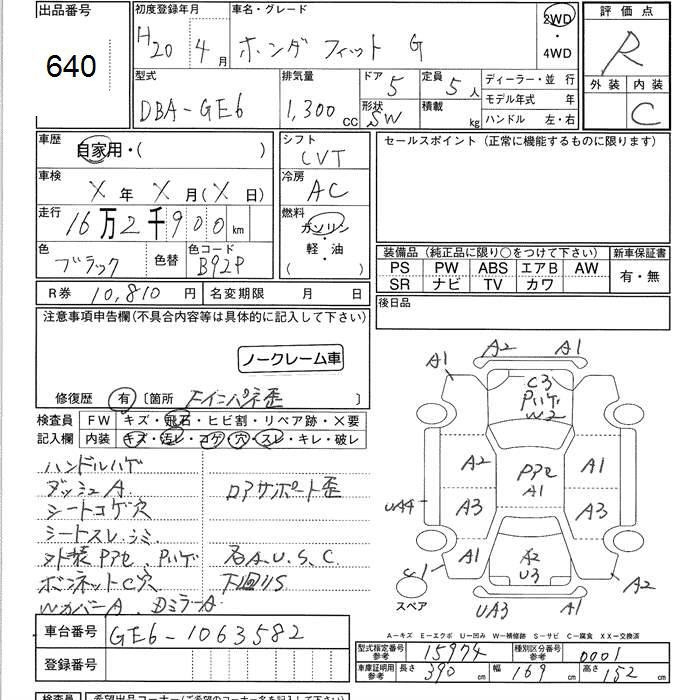 出品番号
640
初度登録年月
H20 4月
車名・グレード
ホンダ フィット G
2WD
・
4WD
評価点
R
外装 内装
C
型式
DBA-GE6
排気量
1,300 cc
ドア 5
形状 SW
定員 5人
積載 kg
ディーラー・並行
モデル年式 年
ハンドル 左・右
車歴
自家用・( )
シフト
CVT
セールスポイント(正常に機能するものに限ります)
車検
X年 X月(X日)
冷房
AC
走行
16万2千900km
燃料
ガソリン
・
軽・油
( )
色
ブラック
色替
色コード
B92P
装備品(純正品に限り○をつけて下さい)
新車保証書
PS PW ABS エアB AW
SR ナビ TV カワ
有・無
R券 10,810円
名変期限 月 日
後日品
注意事項申告欄(不具合内容等は具体的に記入して下さい)
ノークレーム車
修復歴 有 〔箇所 Fインパネ歪 〕
検査員
記入欄
FW キズ・飛石・ヒビ割・リペア跡・×要
内装 キズ・汚レ・コゲ・穴・スレ・キレ・破レ
ハンドルハゲ
ダッシュA
ロアサポート歪
シートコゲ穴
シートスレ、シミ
外装PアセPハゲ
各A.U.S.C.
ボンネットC穴
下廻りS
WカバーA DミラーA
A1 A2 A1
C3
Pハゲ
W2
A2
Pアセ
A1
A1
UA4
A3
A3
A1
A2
U3
C1
A2
スペア
UA3
A1
A-キズ E-エクボ U-凹み W-補修跡 S-サビ C-腐食 XX-交換済
車台番号
GE6-1063582
登録番号
型式指定番号
参考
15974
種別区分番号
参考
0001
車庫証明用
参考
長さ 390cm
幅 169cm
高さ 152cm
検査員
希望出品コーナー(ご希望のコーナー名を記入して下さい)